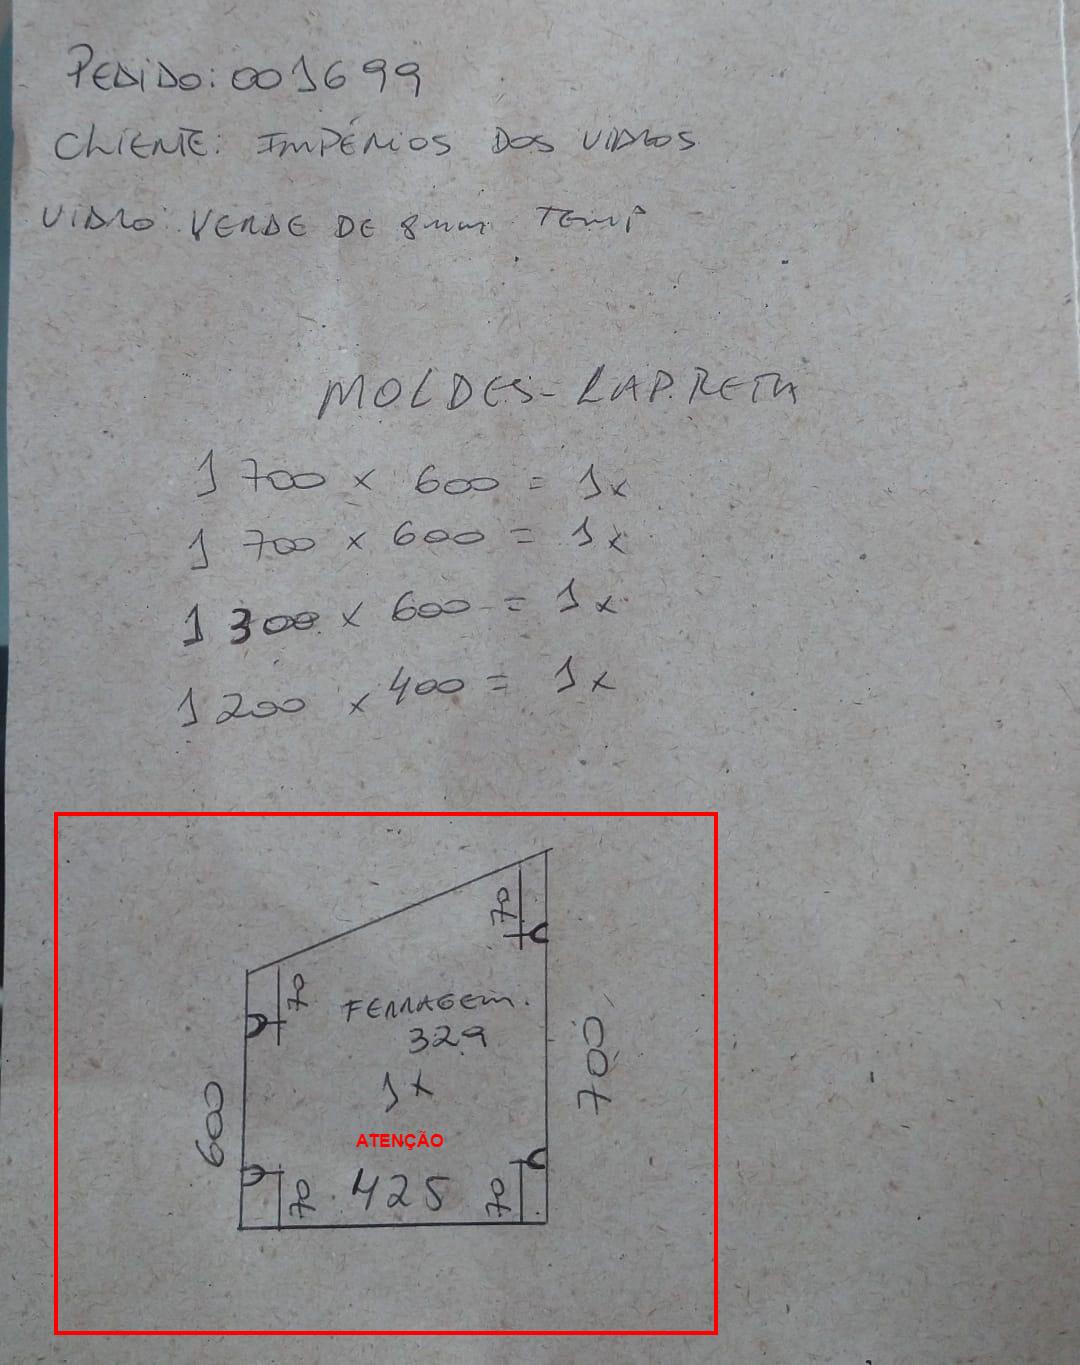 PEDIDO: 001699
CLIENTE: IMPÉRIOS DOS VIDROS
VIDRO: VERDE DE 8mm TEMP
MOLDES - LAP. RETA
1 700 x 600 = 1x
1 700 x 600 = 1x
1 300 x 600 = 1x
1 200 x 400 = 1x
70
70
FERRAGEM.
329
1x
600
700
ATENÇÃO
70
425
70